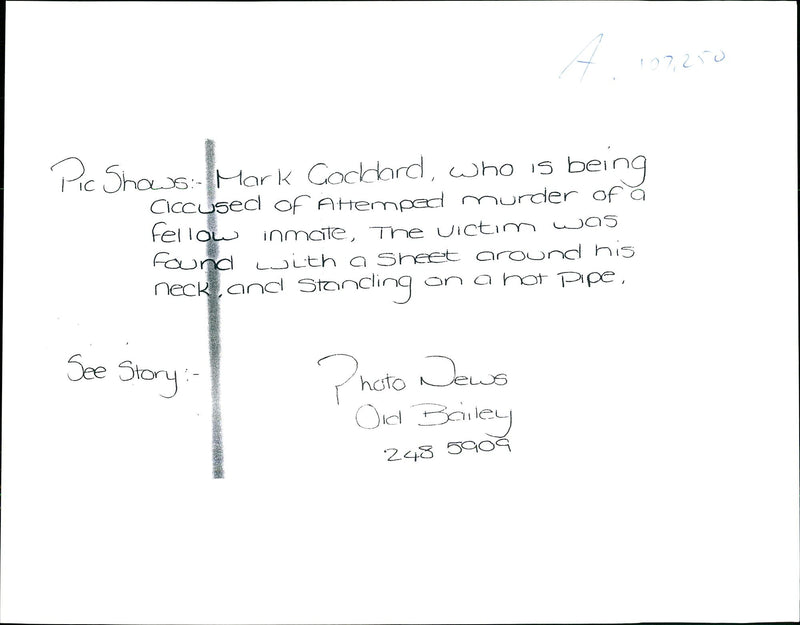 A. 107,250
Pic Shows:- Mark Goddard, who is being
accused of Attemped murder of a
fellow inmate, The victim was
found with a sheet around his
neck, and standing on a hot pipe.
See Story:-
Photo News
Old Bailey
248 5909